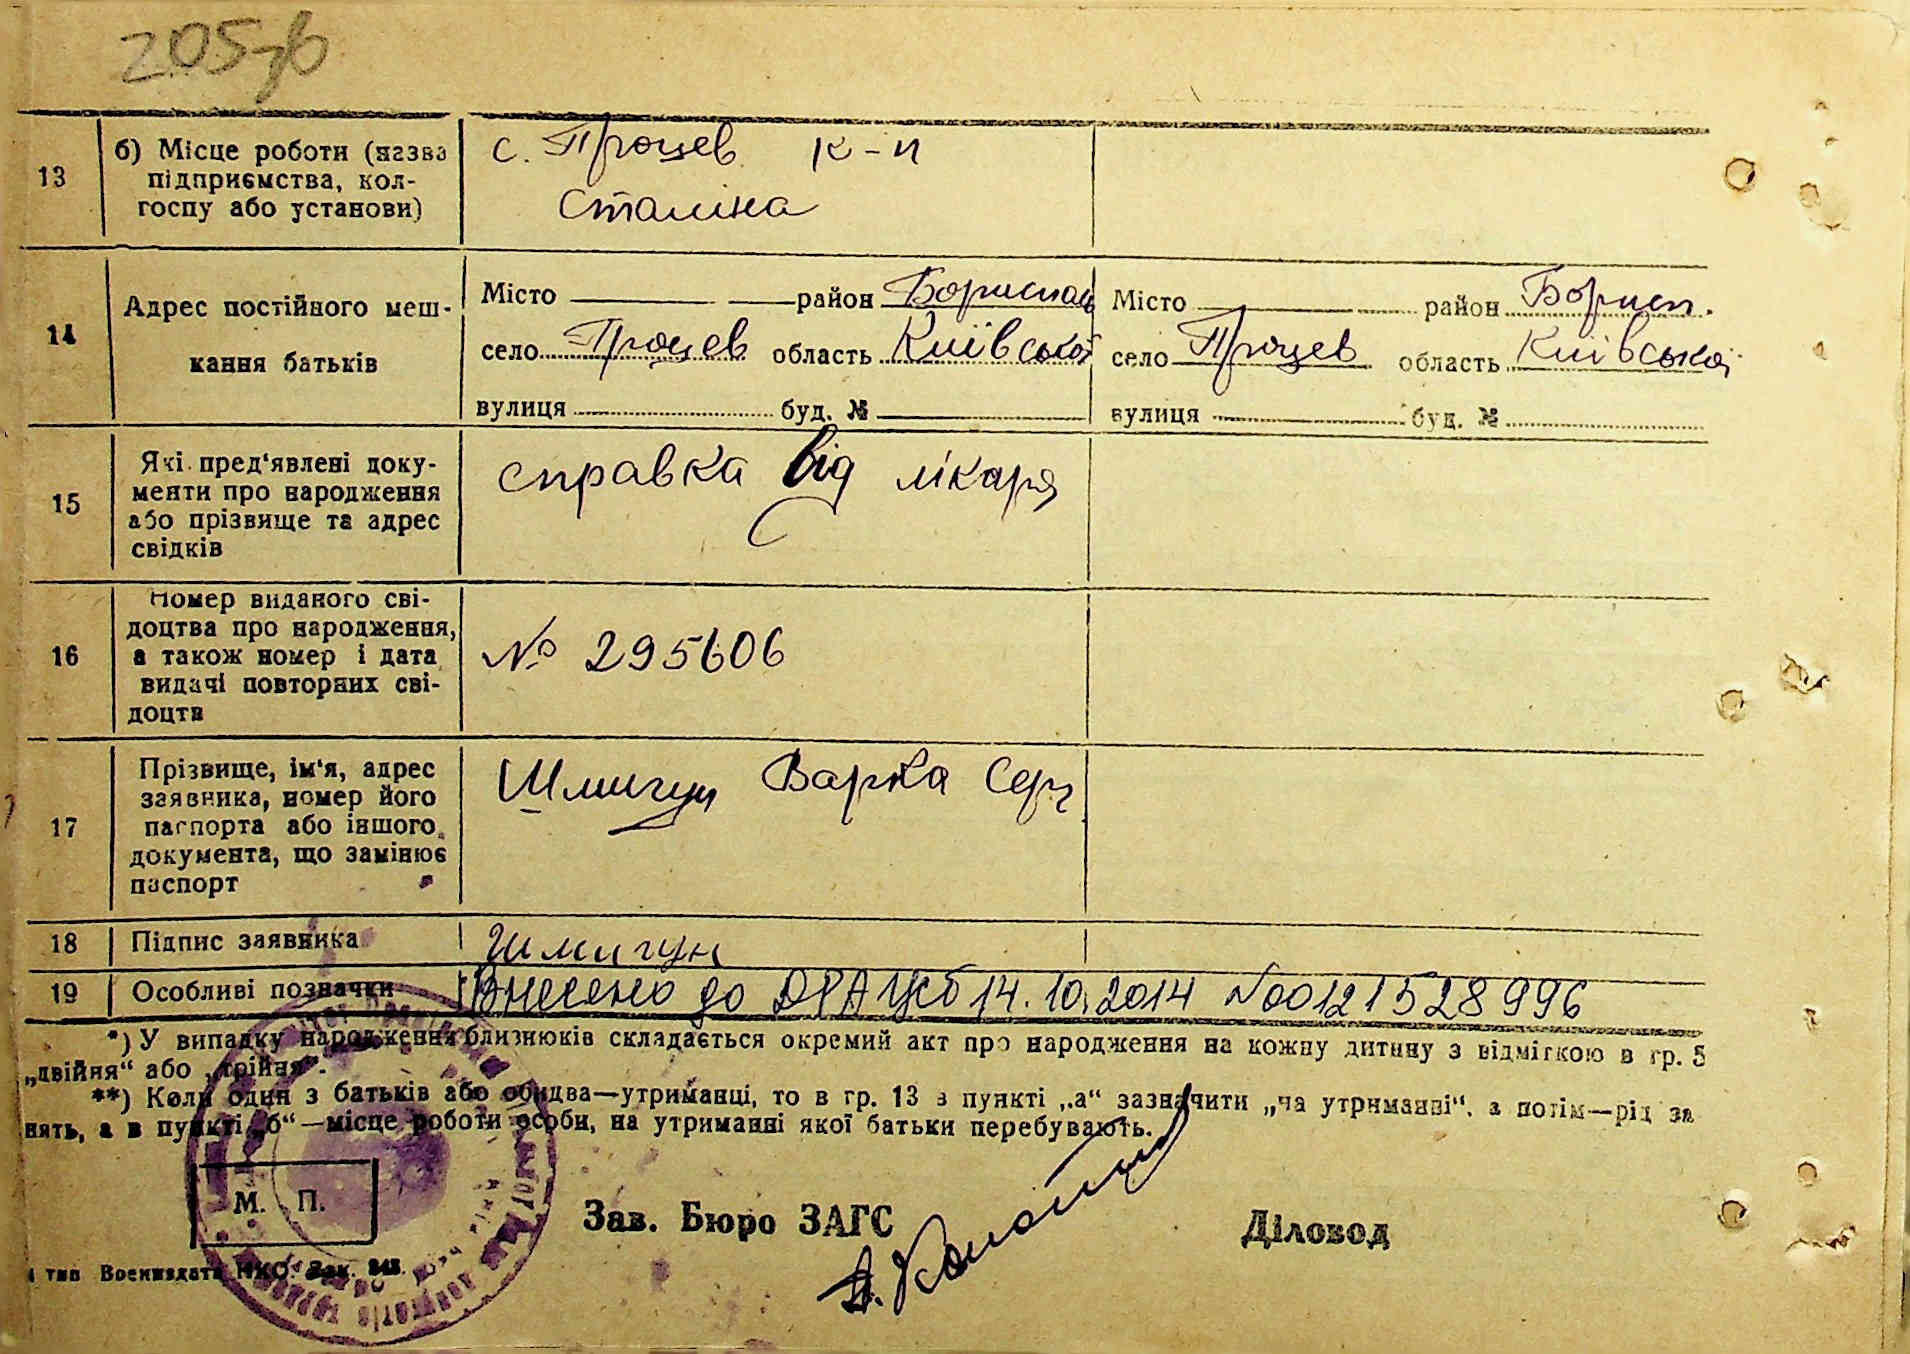 205 зв
13
б) Місце роботи (назва підприємства, колгоспу або установи)
с. Процев к-п
Сталіна
14
Адрес постійного меш-
кання батьків
Місто район Бориспол
село Процев область Київської
вулиця буд. №
Місто район Борисп.
село Процев область Київської
вулиця буд. №
15
Які пред'явлені доку-
менти про народження
або прізвище та адрес
свідків
справка від лікаря
16
Номер виданого сві-
доцтва про народження,
а також номер і дата
видачі повторних сві-
доцтв
№ 295606
17
Прізвище, ім'я, адрес
заявника, номер його
паспорта або іншого
документа, що замінює
паспорт
Шмигун Варка Серг
18
Підпис заявника
Шмигун
19
Особливі позначки
Внесено до ДРАЦСб 14.10.2014 №00121528996
*) У випадку народження близнюків складається окремий акт про народження на кожну дитину з відміткою в гр. 5
„двійня“ або „трійня“.
**) Коли один з батьків або обидва—утриманці, то в гр. 13 в пункті „а“ зазначити „на утриманні“, а потім—рід за
нять, а в пункті „б“—місце роботи особи, на утриманні якої батьки перебувають.
М. П.
Зав. Бюро ЗАГС
Діловод
тип Воениздата НКО. Зак. 343.